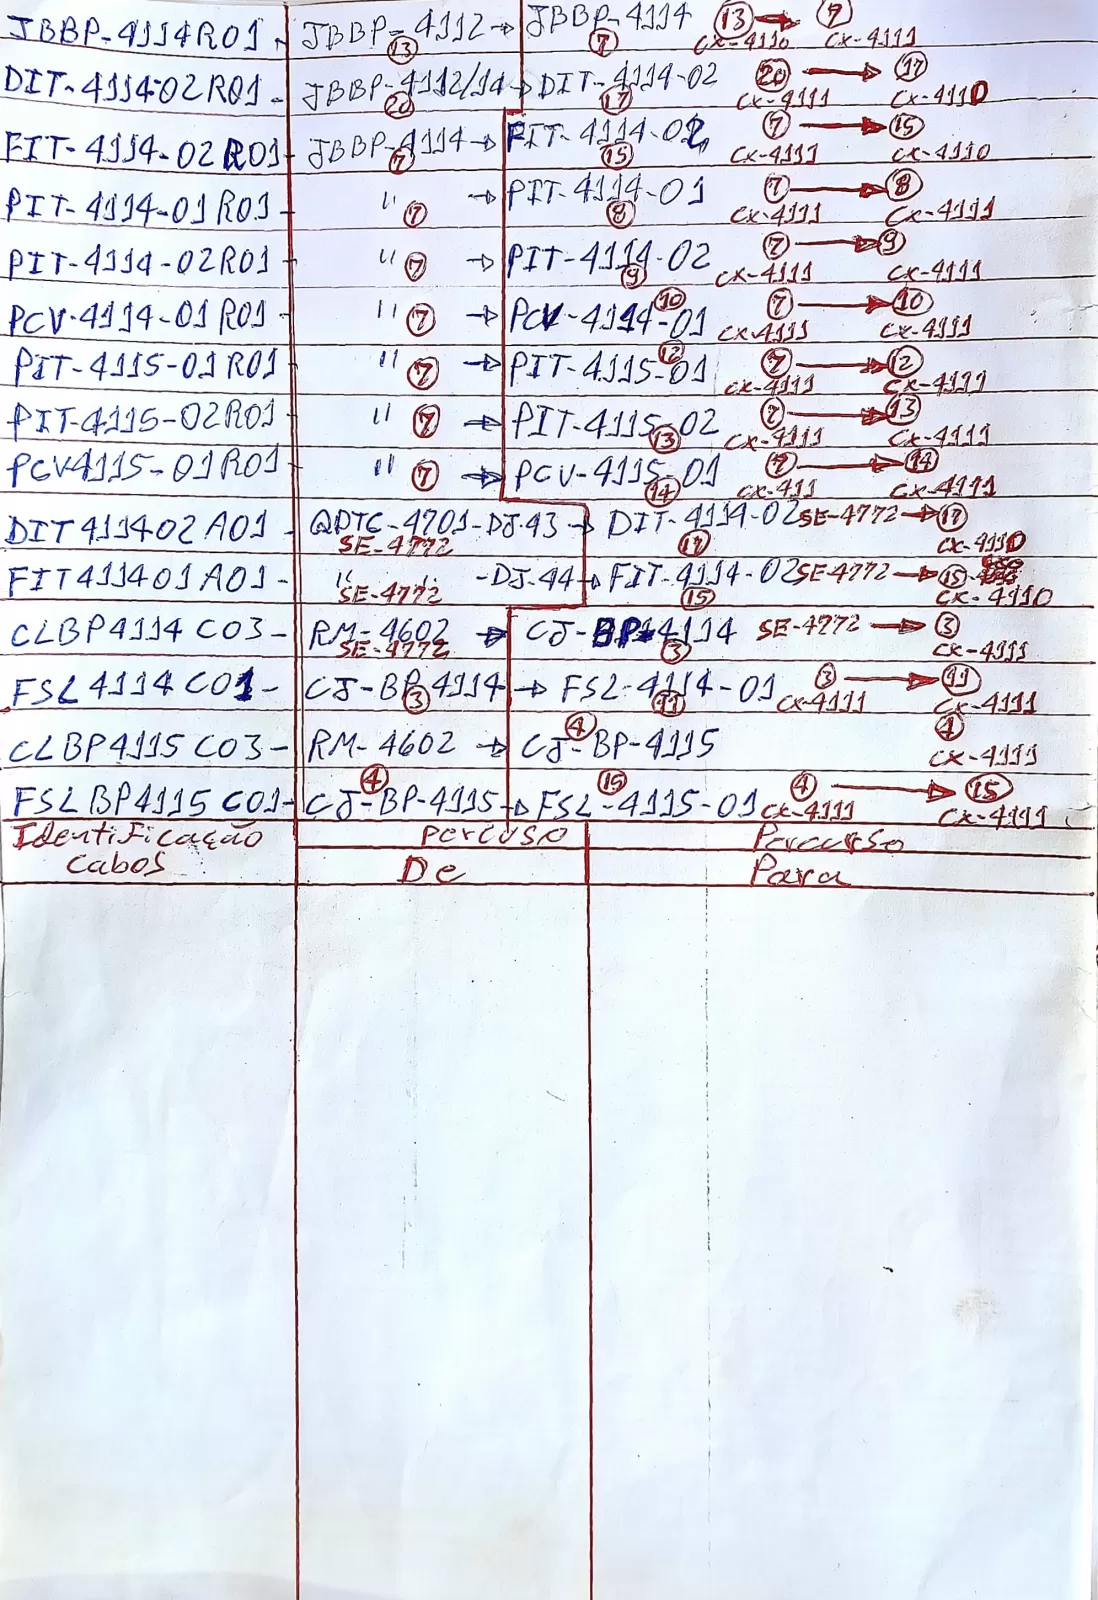 JBBP-4114R01- JBBP-4112 → JBBP-4114 (13) → (7)
(13) (7) CX-4110 CX-4111
DIT-4114-02R01- JBBP-4112/14 → DIT-4114-02 (20) → (17)
(20) (17) CX-4111 CX-4110
FIT-4114-02R01- JBBP-4114 → FIT-4114-02 (7) → (15)
(7) (15) CX-4111 CX-4110
PIT-4114-01R01- " (7) → PIT-4114-01 (7) → (8)
(8) CX-4111 CX-4111
PIT-4114-02R01- " (7) → PIT-4114-02 (7) → (9)
(9) CX-4111 CX-4111
PCV-4114-01R01- " (7) → PCV-4114-01 (10) (7) → (10)
CX-4111 CX-4111
PIT-4115-01R01- " (7) → PIT-4115-01 (12) (7) → (12)
CX-4111 CX-4111
PIT-4115-02R01- " (7) → PIT-4115-02 (7) → (13)
(13) CX-4111 CX-4111
PCV4115-01R01- " (7) → PCV-4115-01 (7) → (14)
(14) CX-411 CX-4111
DIT411402A01- QDTC-4701-DJ-43 → DIT-4114-02 SE-4772 → (17)
SE-4772 (17) CX-4110
FIT411401A01- " " -DJ-44 → FIT-4114-02 SE-4772 → (15)
SE-4772 (15) CX-4110
CLBP4114C03- RM-4602 → CJ-BP-4114 SE-4772 → (3)
SE-4772 (3) CX-4111
FSL4114C01- CJ-BP-4114 → FSL-4114-01 (3) → (11)
(3) (11) CX-4111 CX-4111
CLBP4115C03- RM-4602 → CJ-BP-4115 (4) (4)
CX-4111
(4) (15) (4) → (15)
FSLBP4115C01- CJ-BP-4115 → FSL-4115-01 CX-4111 CX-4111
Identificação Percuso Percurso
cabos De Para